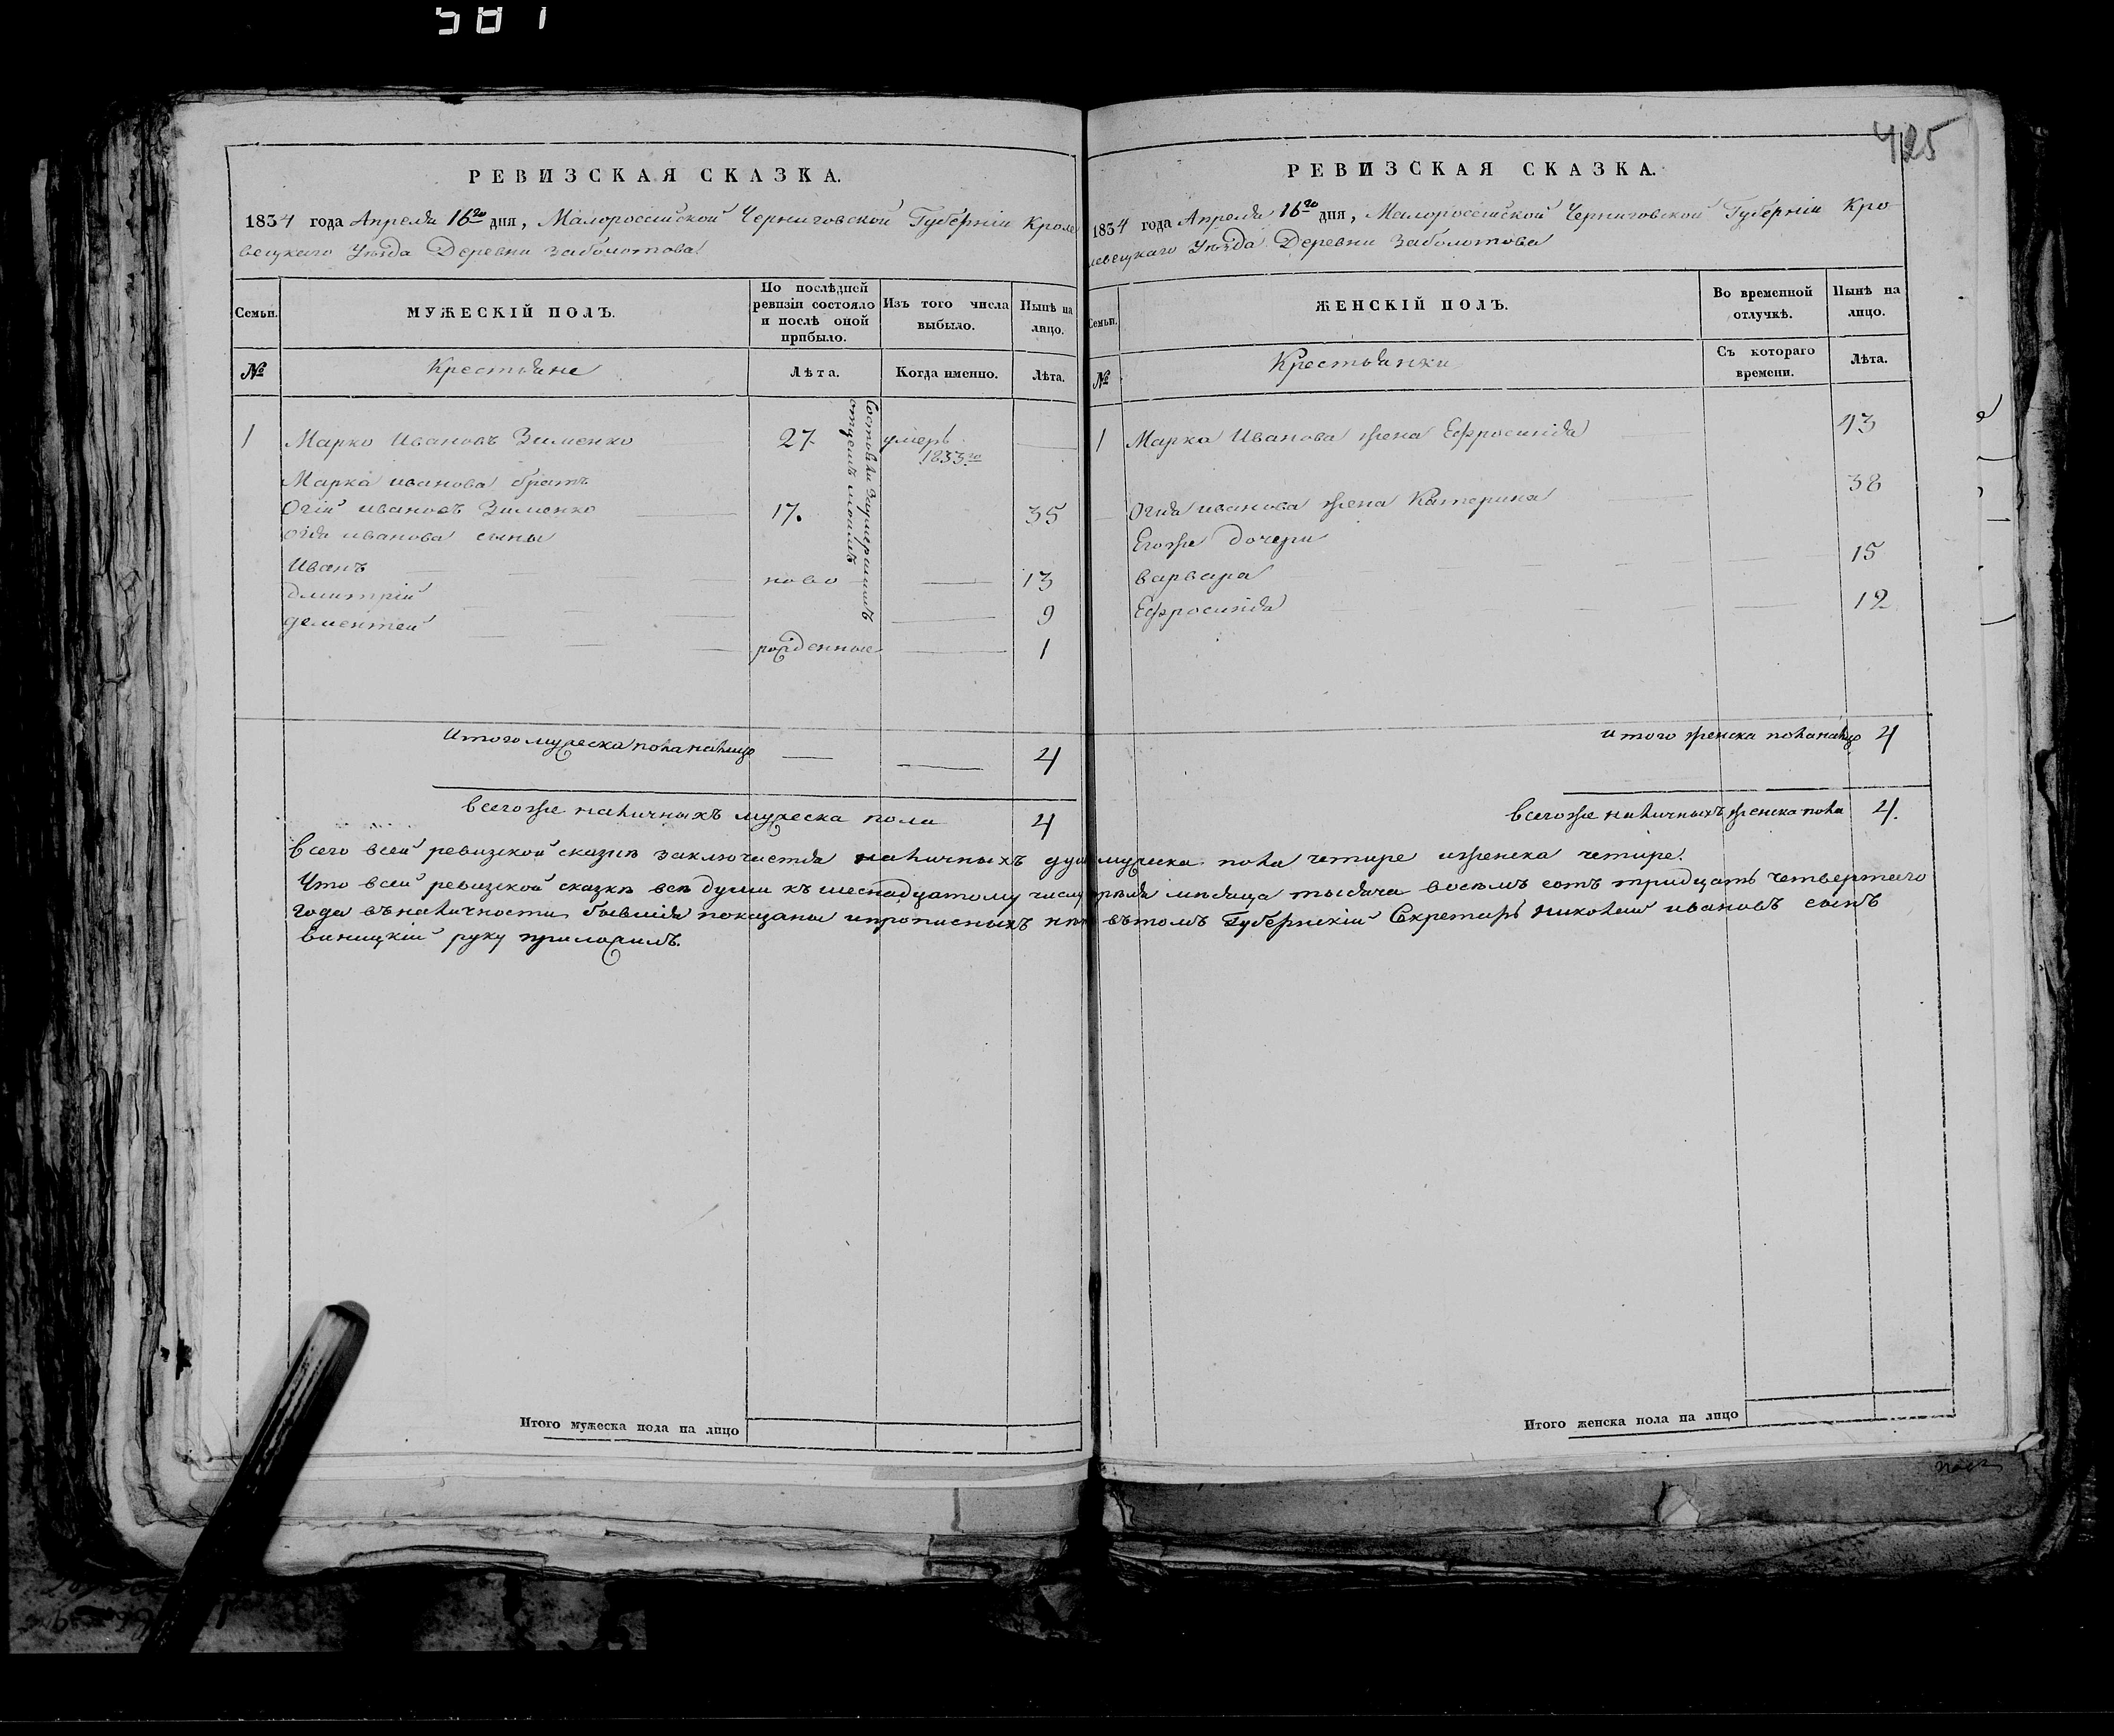 581
425
РЕВИЗСКАЯ СКАЗКА.
1834 года Апреля 16го дня, Малороссійской Черниговской Губерніи Кроле
вецкаго Уѣзда Деревни Заболотова
Семьи.
МУЖЕСКІЙ ПОЛЪ.
По послѣдней ревизіи состояло и послѣ оной прибыло.
Изъ того числа выбыло.
Нынѣ на лицо.
№
Крестьяне
Лѣта.
Когда именно.
Лѣта.
1 Марко Ивановъ Зименко 27 умеръ 1833го
Марка иванова братъ
Огій ивановъ Зименко 17. 35
Огія иванова сыны
Иванъ ново 13
дмитрій 9
дементей рожденные 1
отцемъ моимъ
Итого мужеска пола налицо 4
всегоже наличныхъ мужеска пола 4
РЕВИЗСКАЯ СКАЗКА.
1834 года Апреля 16го дня, Малороссійской Черниговской Губерніи Кро
левецкаго Уѣзда Деревни Заболотова
Семьи.
ЖЕНСКІЙ ПОЛЪ.
Во временной отлучкѣ.
Нынѣ на лицо.
№
Крестьянки
Съ котораго времени.
Лѣта.
1 Марка Иванова жена Ефросинія 43
Огия иванова жена Катерина 38
Егоже дочери
варвара 15
Ефросинія 12
итого женска пола налицо 4
всегоже наличныхъ женска пола 4.
всего всей ревизской сказке заключается наличныхъ душ мужеска пола четире иженска четире.
Что всей ревизской сказке все души къ шеснадцатому числу месяца тысяча восемъ сотъ тридцать четвертаго
Года вналичности бывшія показаны ипрописныхъ нет вътомъ Губернскій Секретарь николай ивановъ сынъ
виницкій руку приложилъ.
Итого мужеска пола на лицо
Итого женска пола на лицо